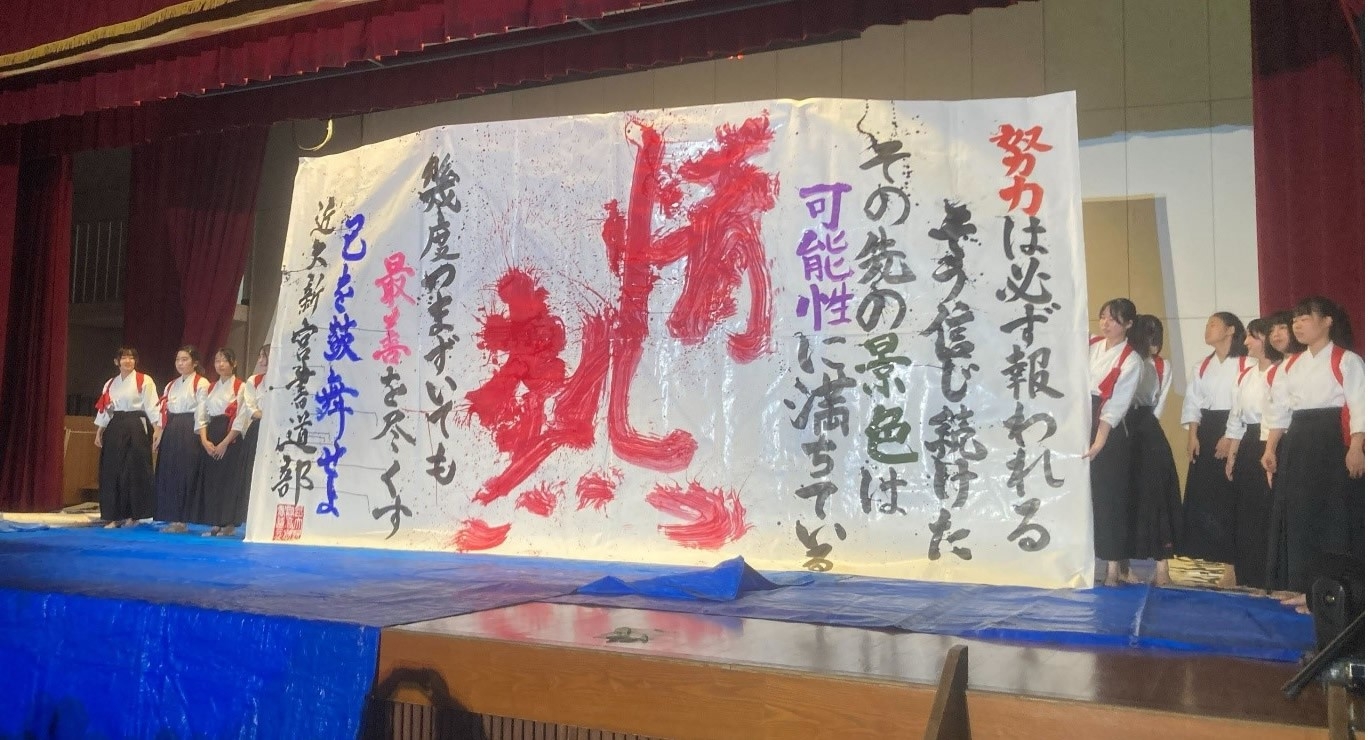 努力は必ず報われる
そう信じ続けた
その先の景色は
可能性に満ちている
幾度つまずいても
最善を尽くす
己を鼓舞せよ
近大新宮書道部